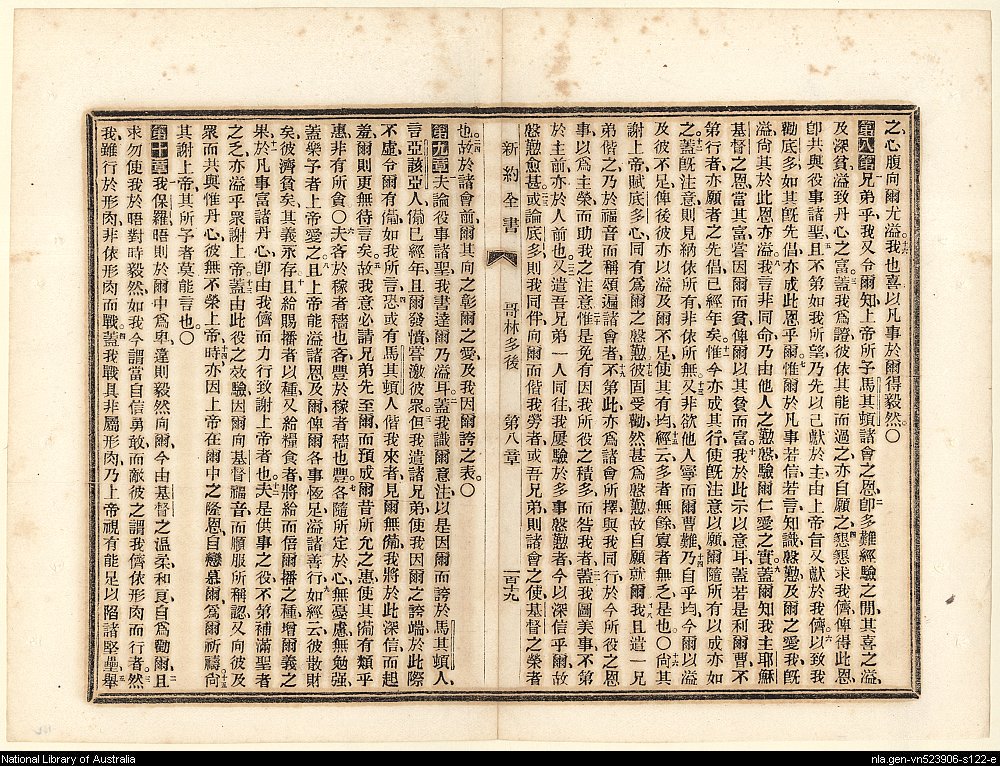 之心腹向爾尤溢我也喜以凡事於爾得毅然〇
第八章兄弟乎我又令爾知上帝所予馬其頓諸會之恩卽多難經驗之間其喜之溢
及深貧溢致丹心之富蓋我爲證彼依其能而過之亦自願之懇懇求我儕俾得此恩
卽共與役事諸聖且不第如我所望乃先以己獻於主由上帝旨又獻於我儕以致我
勸底多如其旣先倡亦成此恩乎爾惟爾於凡事若信若言知識慇懃及爾之愛我旣
溢尙其於此恩亦溢我言非同命乃由他人之慇懃驗爾仁愛之實蓋爾知我主耶穌
基督之恩當其富嘗因爾而貧俾爾以其貧而富我於此示以意耳蓋若是利爾曹不
第行者亦願者之先倡已經年矣惟今亦成其行使旣注意以願爾隨所有以成亦如
之蓋旣注意則見納依所有非依所無又非欲他人寧而爾曹難乃自乎均今爾以溢
及彼不足俾後彼亦以溢及爾不足使其有均經云多者無餘寡者無之是也〇尙其
謝上帝賦底多心同有爲爾之慇懃彼固受勸然甚爲慇懃故自願就爾我且遣一兄
弟偕之乃於福音而稱頌遍諸會者不第此亦爲諸會所擇與我同行於今所役之恩
事以爲主榮而助我之注意惟是免有因我所役之積多而咎我者蓋我圖美事不第
於主前亦於人前也又遣吾兄弟一人同往我屢驗於多事慇懃者今以深信乎爾故
慇懃愈甚或論底多則我同伴向爾而偕我勞者或吾兄弟則諸會之使基督之榮者
新約全書 哥林多後 第八章 一百十九
也故於諸會前爾其向之彰爾之愛及我因爾誇之表〇
第九章夫論役事諸聖我書達爾乃溢耳蓋我識爾意注以是因爾而誇於馬其頓人
言亞該亞人備已經年且爾發憤嘗激彼眾但我遣諸兄弟使我因爾之誇端於此際
不虛令爾有備如我所言恐或有馬其頓人偕我來者見爾無備我將於此深信而起
羞爾則更無待言矣故我意必請兄弟先至爾而預成爾昔所允之惠使其備有類乎
惠非有所貪〇夫吝於稼者穡也吝豐於稼者穡也豐各隨所定於心無憂慮無勉强
蓋樂予者上帝愛之且上帝能溢諸恩及爾俾爾各事恆足溢諸善行如經云彼散財
矣彼濟貧矣其義永存且給賜播者以種又給糧食者將給而倍爾播之種增爾義之
果於凡事富諸丹心卽由我儕而力行致謝上帝者也夫是供事之役不第補滿聖者
之乏亦溢乎眾謝上帝蓋由此役之效驗因爾向基督福音而順服所稱認又向彼及
眾而共與惟丹心彼無不榮上帝時亦因上帝在爾中之隆恩自戀慕爾爲爾祈禱尙
其謝上帝其所予者莫能言也〇
第十章我保羅晤則於爾中爲卑違則毅然向爾今由基督之溫柔和良自爲勸爾且
求勿使我於晤對時毅然如我今謂當自信勇敢而敵彼之謂我儕依形肉而行者然
我雖行於形肉非依形肉而戰蓋我戰具非屬形肉乃上帝視有能足以陷諸堅壘舉
National Library of Australia
nla.gen-vn523906-s122-e